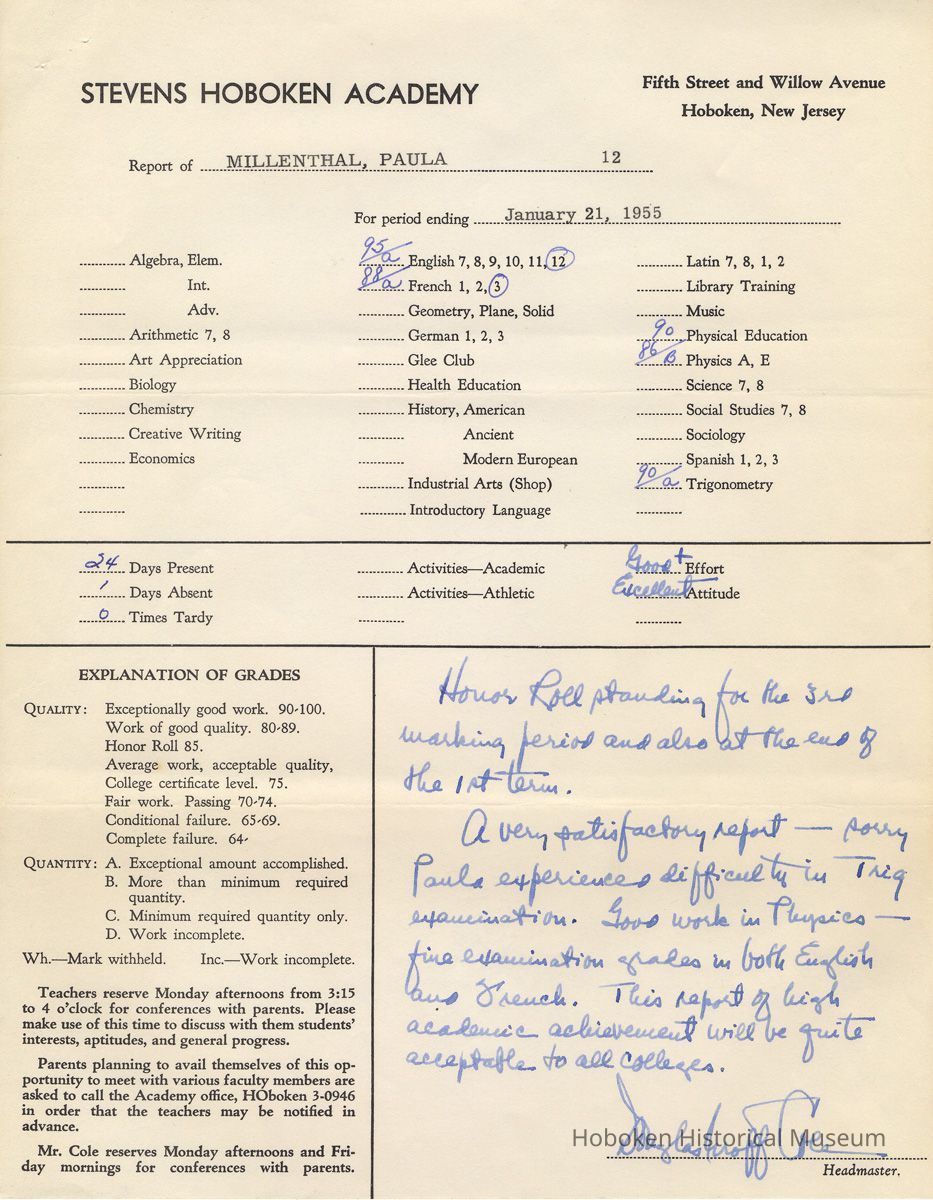 STEVENS HOBOKEN ACADEMY
Fifth Street and Willow Avenue
Hoboken, New Jersey
Report of MILLENTHAL, PAULA 12
For period ending January 21, 1955
Algebra, Elem.
Int.
Adv.
Arithmetic 7, 8
Art Appreciation
Biology
Chemistry
Creative Writing
Economics
95/a English 7, 8, 9, 10, 11, 12
88/a French 1, 2, 3
Geometry, Plane, Solid
German 1, 2, 3
Glee Club
Health Education
History, American
Ancient
Modern European
Industrial Arts (Shop)
Introductory Language
Latin 7, 8, 1, 2
Library Training
Music
90 Physical Education
86/B Physics A, E
Science 7, 8
Social Studies 7, 8
Sociology
Spanish 1, 2, 3
90/a Trigonometry
24 Days Present
1 Days Absent
0 Times Tardy
Activities—Academic
Activities—Athletic
Good+ Effort
Excellent Attitude
EXPLANATION OF GRADES
QUALITY: Exceptionally good work. 90-100.
Work of good quality. 80-89.
Honor Roll 85.
Average work, acceptable quality,
College certificate level. 75.
Fair work. Passing 70-74.
Conditional failure. 65-69.
Complete failure. 64-
QUANTITY: A. Exceptional amount accomplished.
B. More than minimum required
quantity.
C. Minimum required quantity only.
D. Work incomplete.
Wh.—Mark withheld. Inc.—Work incomplete.
Teachers reserve Monday afternoons from 3:15
to 4 o'clock for conferences with parents. Please
make use of this time to discuss with them students'
interests, aptitudes, and general progress.
Parents planning to avail themselves of this op-
portunity to meet with various faculty members are
asked to call the Academy office, HOboken 3-0946
in order that the teachers may be notified in
advance.
Mr. Cole reserves Monday afternoons and Fri-
day mornings for conferences with parents.
Honor Roll standing for the 3rd
marking period and also at the end of
the 1st term.
A very satisfactory report — sorry
Paula experienced difficulty in Trig
examination. Good work in Physics —
fine examination grades in both English
and French. This report of high
academic achievement will be quite
acceptable to all colleges.
Douglas Cole
Hoboken Historical Museum
Headmaster.